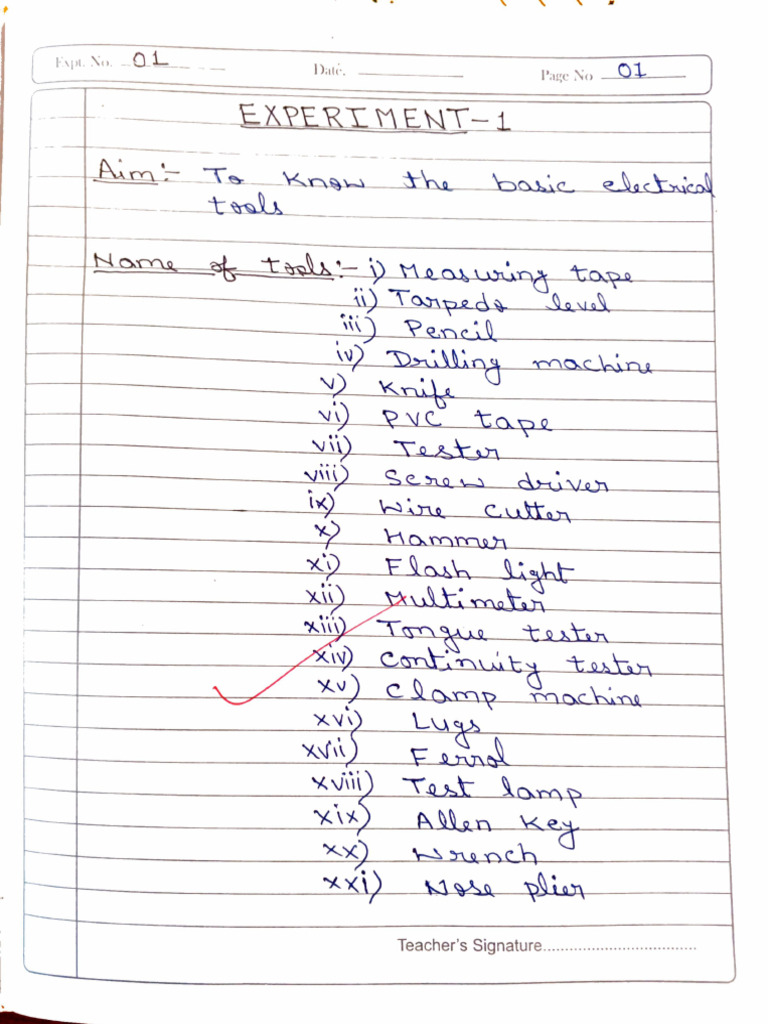 Expt. No. 01 Date. Page No 01
EXPERIMENT-1
Aim:- To know the basic electrical
tools
Name of tools:- i) Measuring tape
ii) Tarpedo level
iii) Pencil
iv) Drilling machine
v) Knife
vi) PVC tape
vii) Tester
viii) Screw driver
ix) Wire cutter
x) Hammer
xi) Flash light
xii) Multimeter
xiii) Tongue tester
xiv) Continuity tester
xv) Clamp machine
xvi) Lugs
xvii) Ferrol
xviii) Test lamp
xix) Allen Key
xx) Wrench
xxi) Nose plier
Teacher's Signature..................................